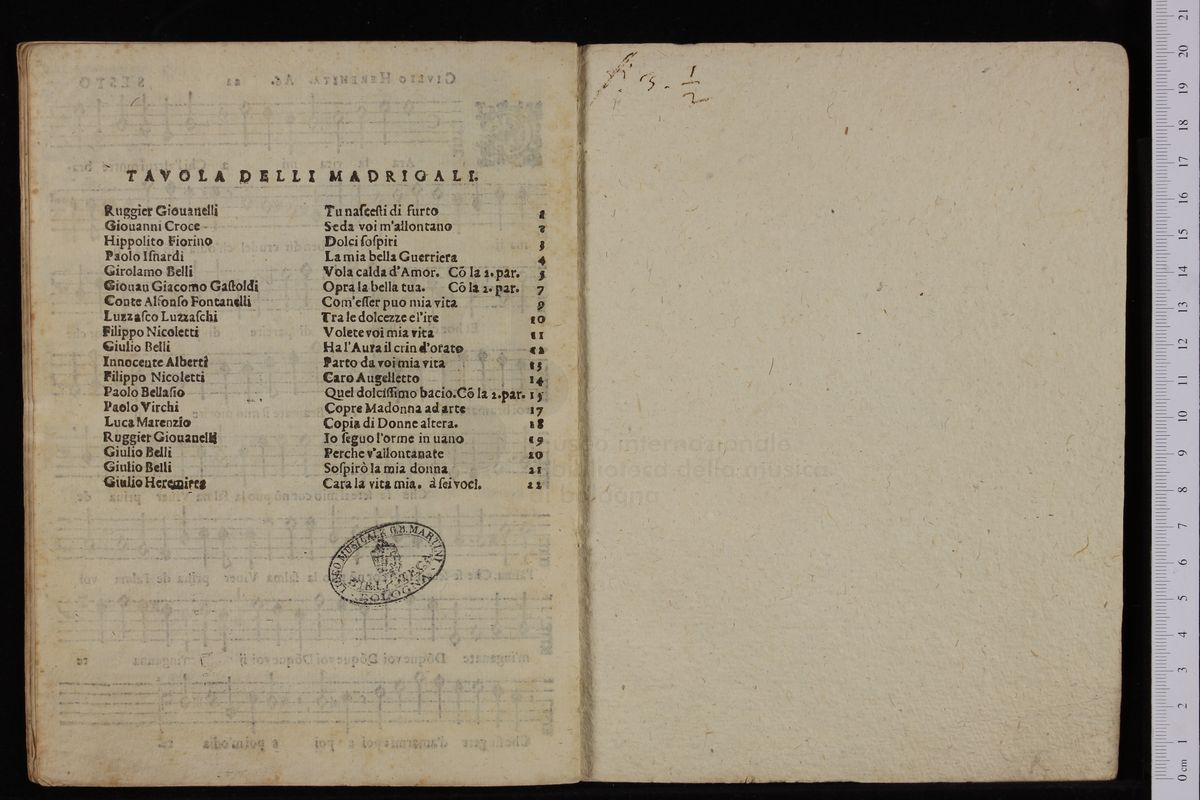 TAVOLA DELLI MADRIGALI.
Ruggier Giouanelli Tu naſceſti di furto 1
Giouanni Croce Se da voi m'allontano 2
Hippolito Fiorino Dolci ſoſpiri 3
Paolo Iſnardi La mia bella Guerriera 4
Girolamo Belli Vola calda d'Amor. Cõ la 2. par. 5
Giouan Giacomo Gaſtoldi Opra la bella tua. Cõ la 2. par. 7
Conte Alfonſo Fontanelli Com'eſſer puo mia vita 9
Luzzaſco Luzzaſchi Tra le dolcezze e l'ire 10
Filippo Nicoletti Volete voi mia vita 11
Giulio Belli Ha l'Aura il crin d'orato 12
Innocente Alberti Parto da voi mia vita 13
Filippo Nicoletti Caro Augelletto 14
Paolo Bellaſio Quel dolciſſimo bacio. Cõ la 2. par. 15
Paolo Virchi Copre Madonna ad arte 17
Luca Marenzio Copia di Donne altera. 18
Ruggier Giouanelli Io ſeguo l'orme in uano 19
Giulio Belli Perche v'allontanate 20
Giulio Belli Soſpirò la mia donna 21
Giulio Heremita Cara la vita mia. à ſei voci. 22
LICEO MUSICALE G.B. MARTINI
BIBLIOTECA
BOLOGNA
3. 1/2
museo internazionale
e biblioteca della musica
di bologna
0 cm 1 2 3 4 5 6 7 8 9 10 11 12 13 14 15 16 17 18 19 20 21